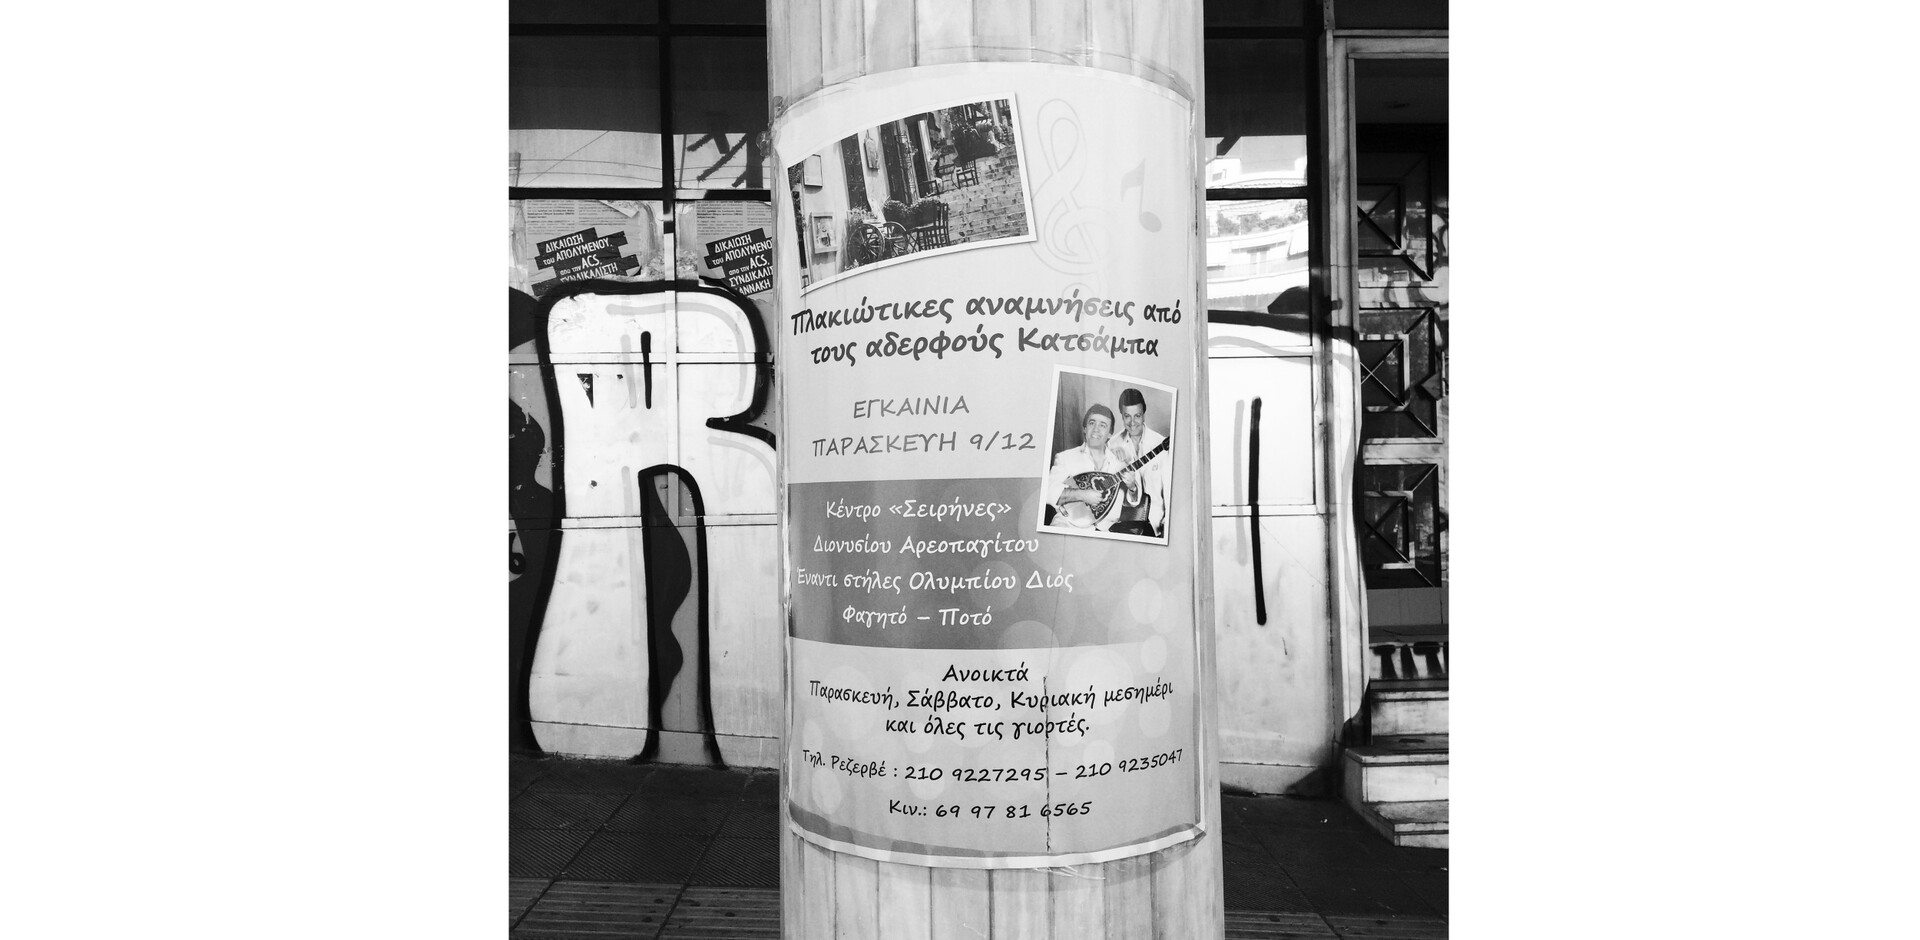 ΔΙΚΑΙΩΣΗ
του ΑΠΟΛΥΜΕΝΟΥ,
απο την ACS,
ΣΥΝΔΙΚΑΛΙΣΤΗ
ΔΙΚΑΙΩΣΗ
του ΑΠΟΛΥΜΕΝΟ
απο την ACS,
ΣΥΝΔΙΚΑΛΙΣ
ΑΝΝΑΚΗ
Πλακιώτικες αναμνήσεις από
τους αδερφούς Κατσάμπα
ΕΓΚΑΙΝΙΑ
ΠΑΡΑΣΚΕΥΗ 9/12
Κέντρο «Σειρήνες»
Διονυσίου Αρεοπαγίτου
Έναντι στήλες Ολυμπίου Διός
Φαγητό – Ποτό
Ανοικτά
Παρασκευή, Σάββατο, Κυριακή μεσημέρι
και όλες τις γιορτές.
Τηλ. Ρεζερβέ : 210 9227295 – 210 9235047
Κιν.: 69 97 81 6565